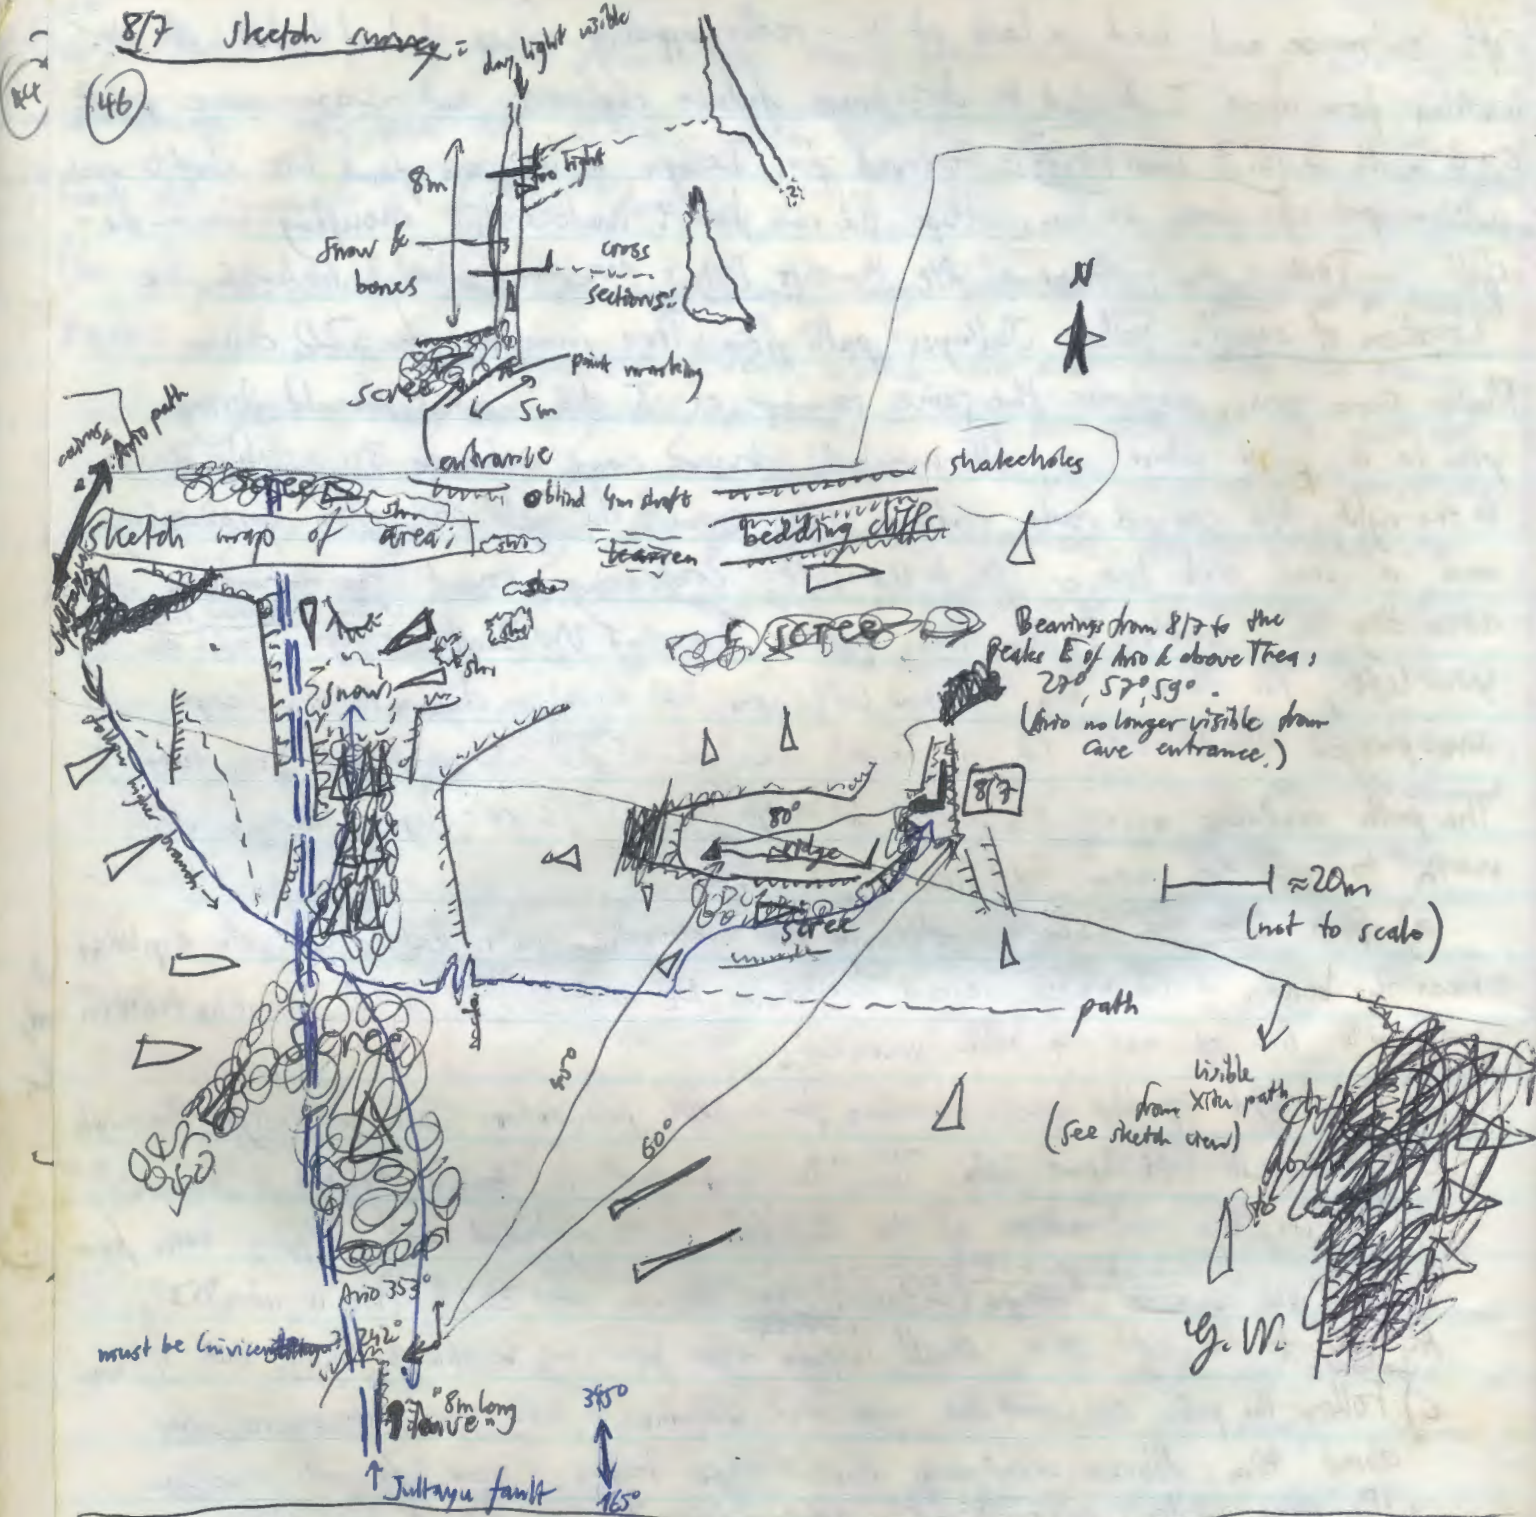 8/7 sketch survey =
44
46
day light visible
8m
too tight
snow &
bones
cross
sections:
scree
point marking
5m
entrance
N
cairns
Ario path
scree
blind 4m shaft
shakeholes
sketch map of area:
bedding cliffs
shr
scree
snow
Bearings from 8/7 to the
peaks E of Ario & above Thea:
27°, 57°, 59°.
(Ario no longer visible from
cave entrance.)
follow higher branch →
8/7
80°
ridge
scree
≈20m
(not to scale)
path
visible
from Xitu path
(see sketch view)
450
60°
scree
Ario 353°
must be
242°
"8m long
cave"
G. W.
↑ Jultayu fault
345°
165°